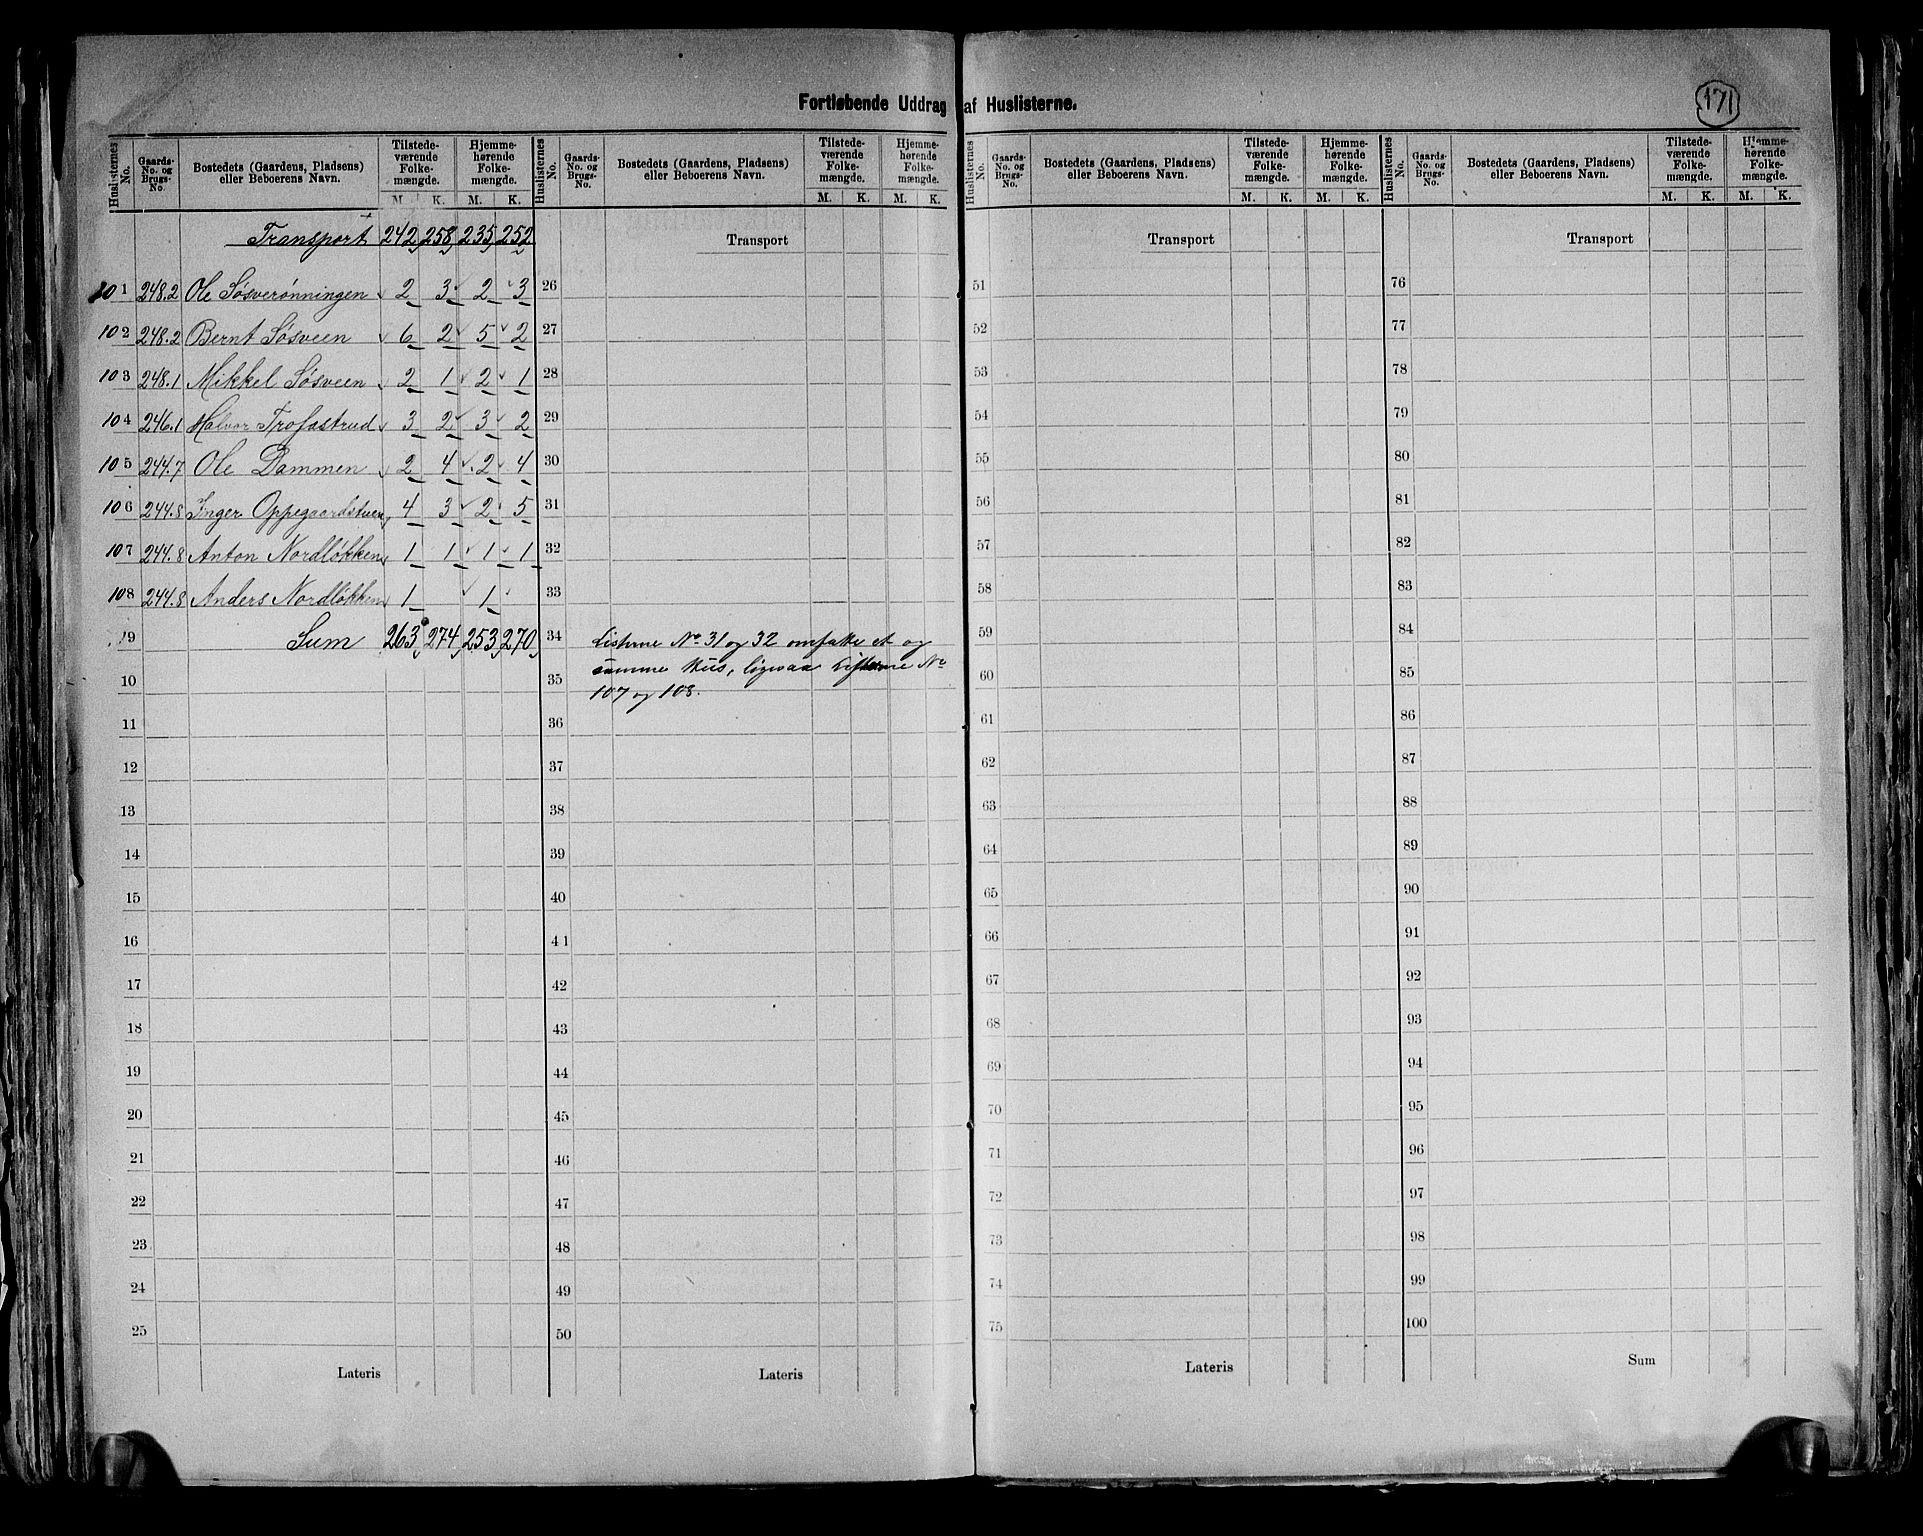 Fortløbende Uddrag af Huslisterne.
171
Huslisternes No. Gaards-No. og Brugs-No. Bostedets (Gaardens, Pladsens) eller Beboerens Navn. Tilstedeværende Folkemængde. M. K. Hjemmehørende Folkemængde. M. K.
Transport 242 258 235 252
101 248.2 Ole Søsverønningen 2 3 2 3
102 248.2 Bernt Søsveen 6 2 5 2
103 248.1 Mikkel Søsveen 2 1 2 1
104 246.1 Halvor Trofastrud 3 2 3 2
105 244.7 Ole Dammen 2 4 2 4
106 244.8 Inger Oppegaardstuen 4 3 2 5
107 244.8 Anton Nordløkken 1 1 1 1
108 244.8 Anders Nordløkken 1 1
9 Sum 263 274 253 270
10
11
12
13
14
15
16
17
18
19
20
21
22
23
24
25
Lateris
Huslisternes No. Gaards-No. og Brugs-No. Bostedets (Gaardens, Pladsens) eller Beboerens Navn. Tilstedeværende Folkemængde. M. K. Hjemmehørende Folkemængde. M. K.
Transport
26
27
28
29
30
31
32
33
34 Listerne No 31 og 32 omfatte et og
samme Hus, ligesaa Listerne No
35 107 og 108.
36
37
38
39
40
41
42
43
44
45
46
47
48
49
50
Lateris
Huslisternes No. Gaards-No. og Brugs-No. Bostedets (Gaardens, Pladsens) eller Beboerens Navn. Tilstedeværende Folkemængde. M. K. Hjemmehørende Folkemængde. M. K.
Transport
51
52
53
54
55
56
57
58
59
60
61
62
63
64
65
66
67
68
69
70
71
72
73
74
75
Lateris
Huslisternes No. Gaards-No. og Brugs-No. Bostedets (Gaardens, Pladsens) eller Beboerens Navn. Tilstedeværende Folkemængde. M. K. Hjemmehørende Folkemængde. M. K.
Transport
76
77
78
79
80
81
82
83
84
85
86
87
88
89
90
91
92
93
94
95
96
97
98
99
100
Sum